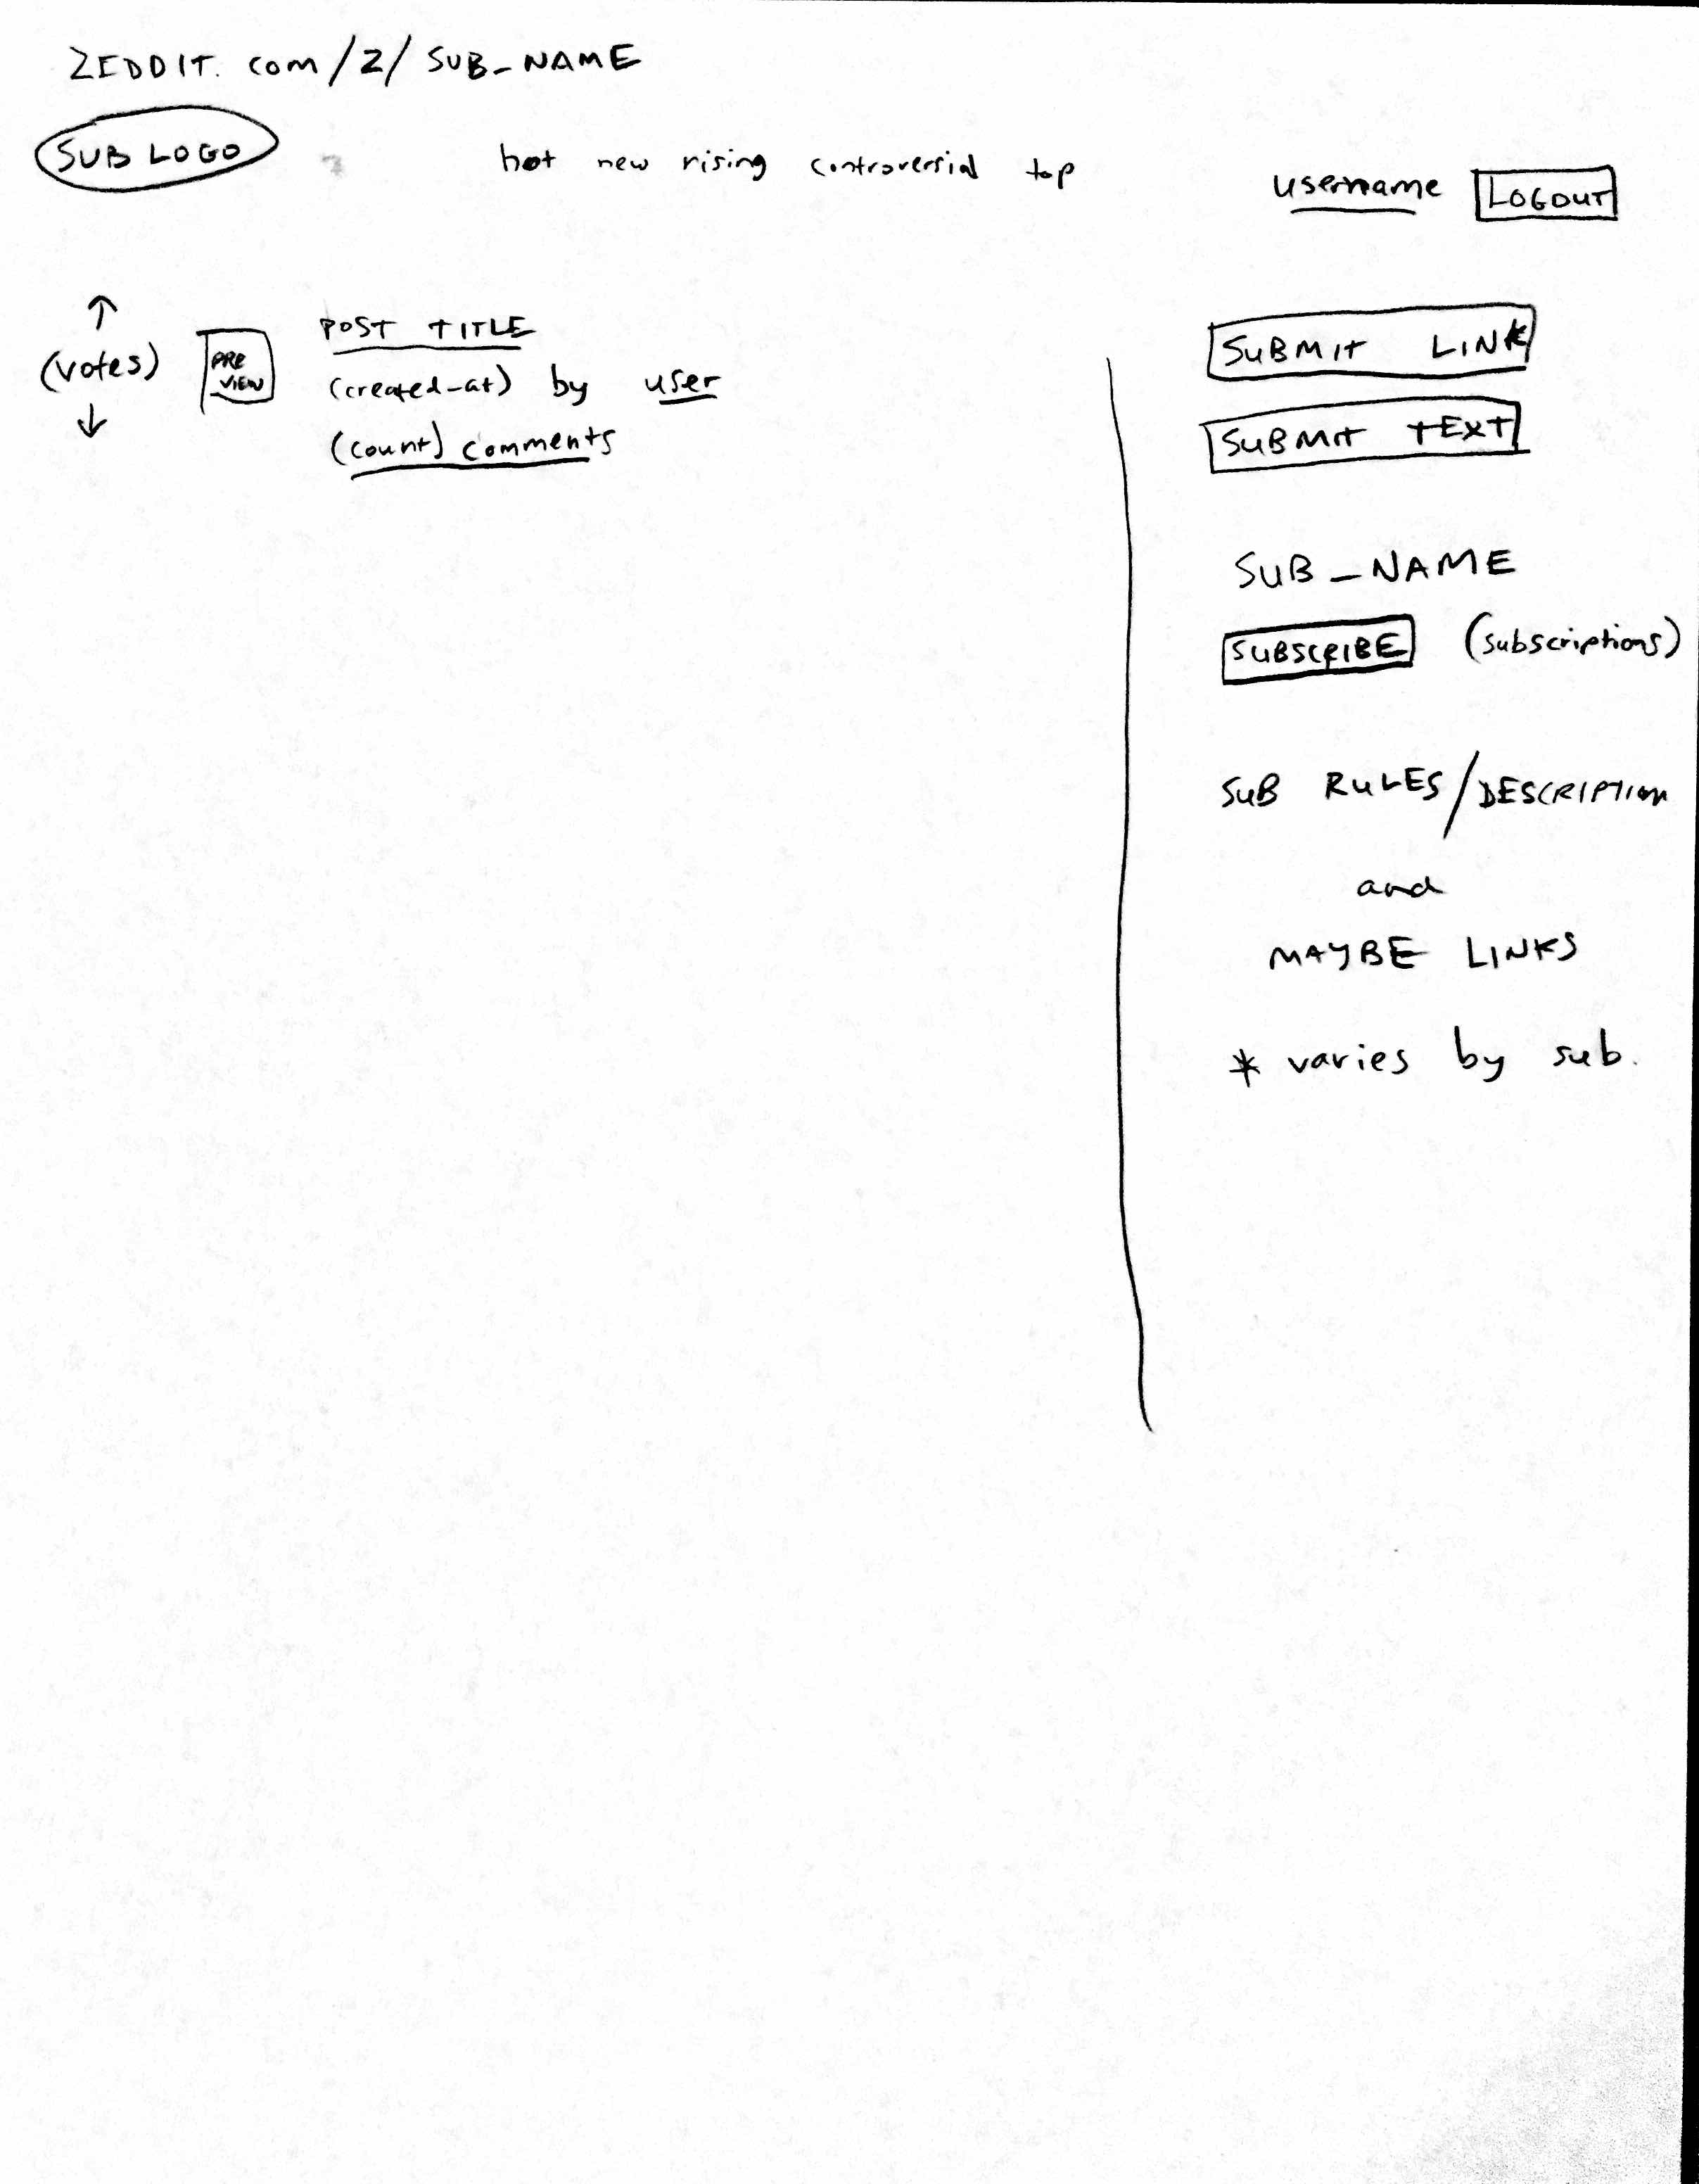 ZEDDIT.com/Z/SUB_NAME
SUB LOGO
hot new rising controversial top
username LOGOUT
↑
(votes)
↓
PRE
VIEW
POST TITLE
(created-at) by user
(count) comments
SUBMIT LINK
SUBMIT TEXT
SUB_NAME
SUBSCRIBE (subscriptions)
SUB RULES/DESCRIPTION
and
MAYBE LINKS
* varies by sub.